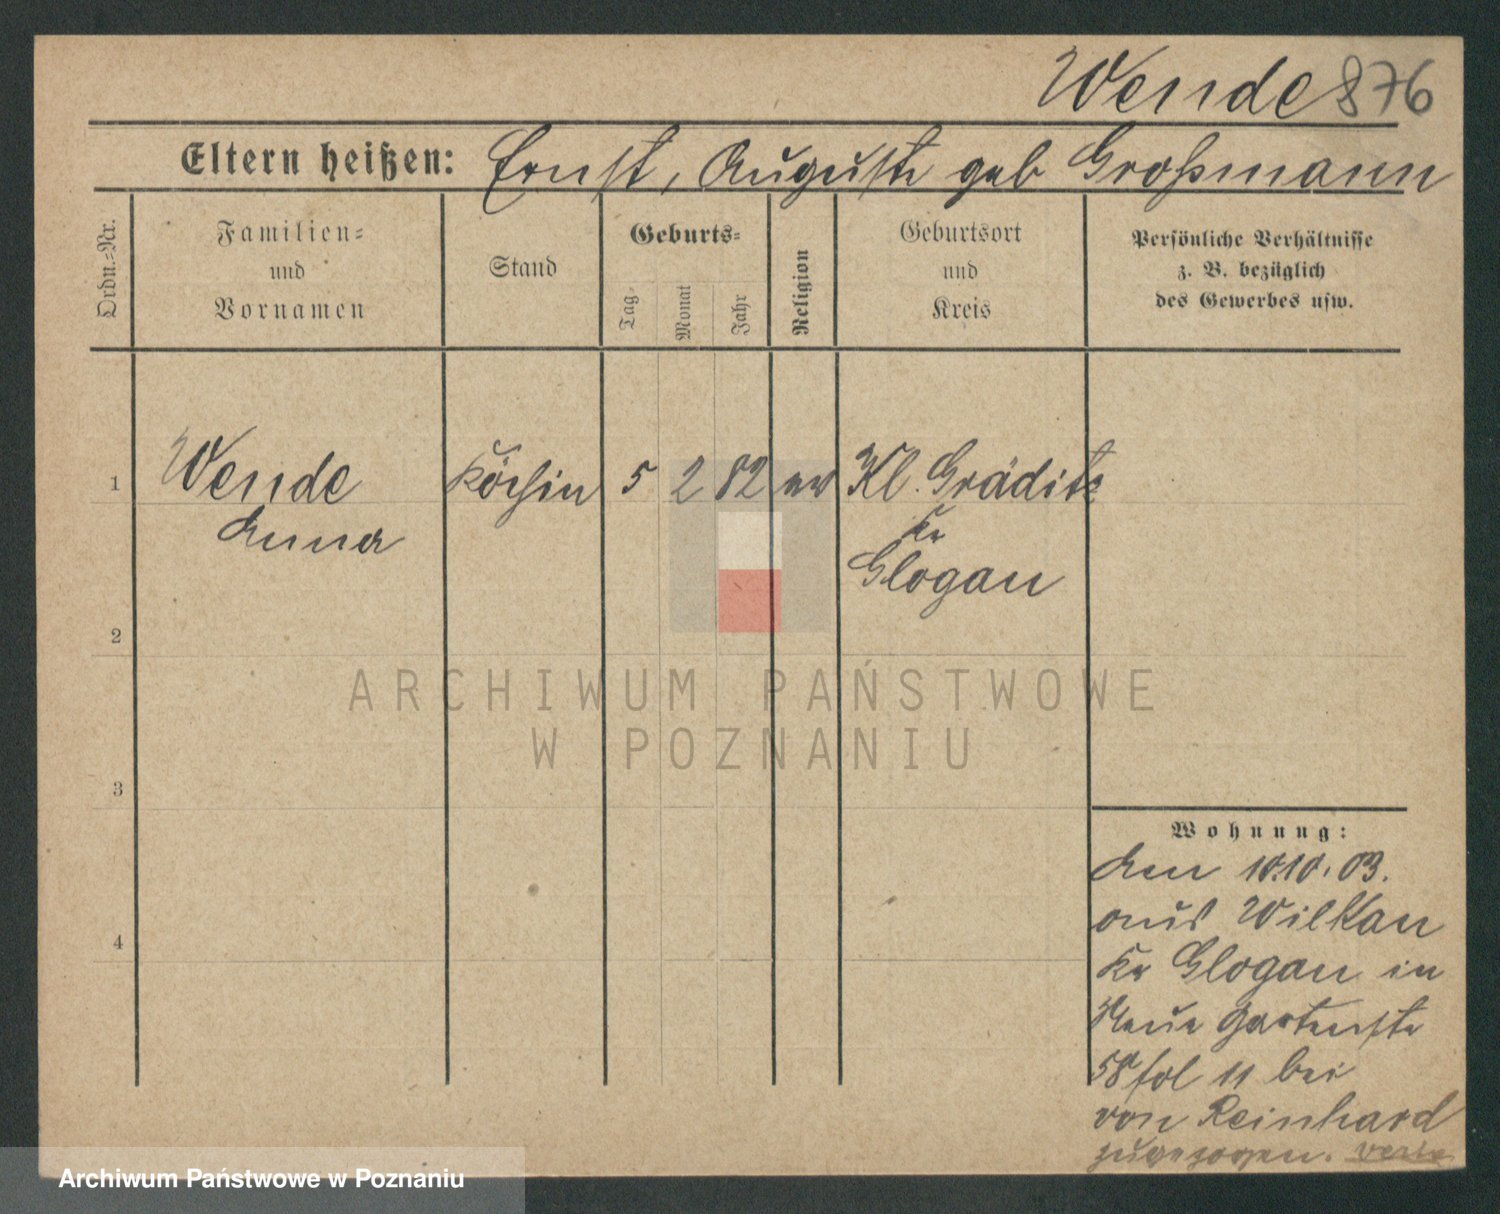 Wende 876
Eltern heißen: Ernst, Auguste geb Großmann
Ordn.-Nr.
Familien-
und
Vornamen
Stand
Geburts-
Tag
Monat
Jahr
Religion
Geburtsort
und
Kreis
Persönliche Verhältnisse
z. B. bezüglich
des Gewerbes usw.
1 Wende Köchin 5 2 82 ev Kl. Gräditz
Anna
Kr
Glogau
2
3
4
Wohnung:
Am 10.10.03.
aus Wilkau
Kr Glogau in
Neue Gartenstr
58 fol 11 bei
von Reinhard
zugezogen.
ARCHIWUM PAŃSTWOWE
W POZNANIU
Archiwum Państwowe w Poznaniu